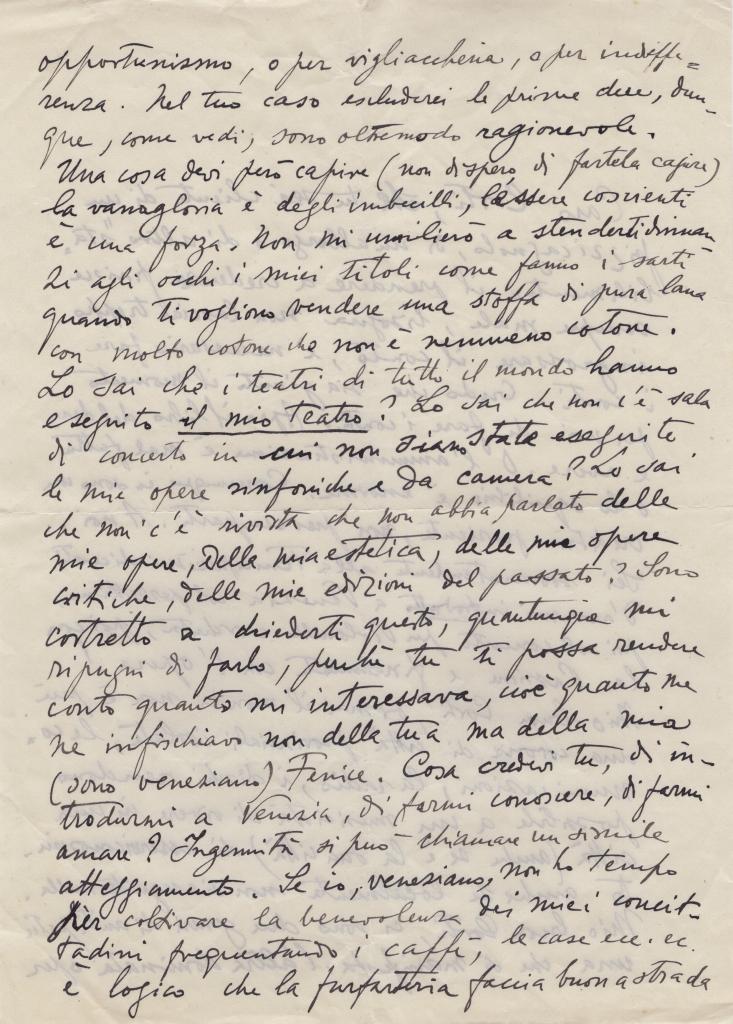 opportunismo, o per vigliaccheria, o per indiffe=
renza. Nel tuo caso escluderei le prime due, dun-
que, come vedi, sono oltremodo ragionevole.
Una cosa devi però capire (non dispero di fartela capire)
la vanagloria è degli imbecilli, l'essere coscienti
è una forza. Non mi umilierò a stenderti dinnan
zi agli occhi i miei titoli come fanno i sarti
quando ti vogliono vendere una stoffa di pura lana
con molto cotone che non è nemmeno cotone.
Lo sai che i teatri di tutto il mondo hanno
eseguito il mio teatro? Lo sai che non c'è sala
di concerto in cui non siano state eseguite
le mie opere sinfoniche e da camera? Lo sai
che non c'è rivista che non abbia parlato delle
mie opere, della mia estetica, delle mie opere
critiche, delle mie edizioni del passato? Sono
costretto a chiederti questo, quantunque mi
ripugni di farlo, perchè tu ti possa rendere
conto quanto mi interessava, cioè quanto me
ne infischiavo non della tua ma della mia
(sono veneziano) Fenice. Cosa credevi tu, di in-
trodurmi a Venezia, di farmi conoscere, di farmi
amare? Ingenuità si può chiamare un simile
atteggiamento. Se io, veneziano, non ho tempo
per coltivare la benevolenza dei miei concit-
tadini frequentando i caffè, le case ecc. ec.
è logico che la furfanteria faccia buona strada